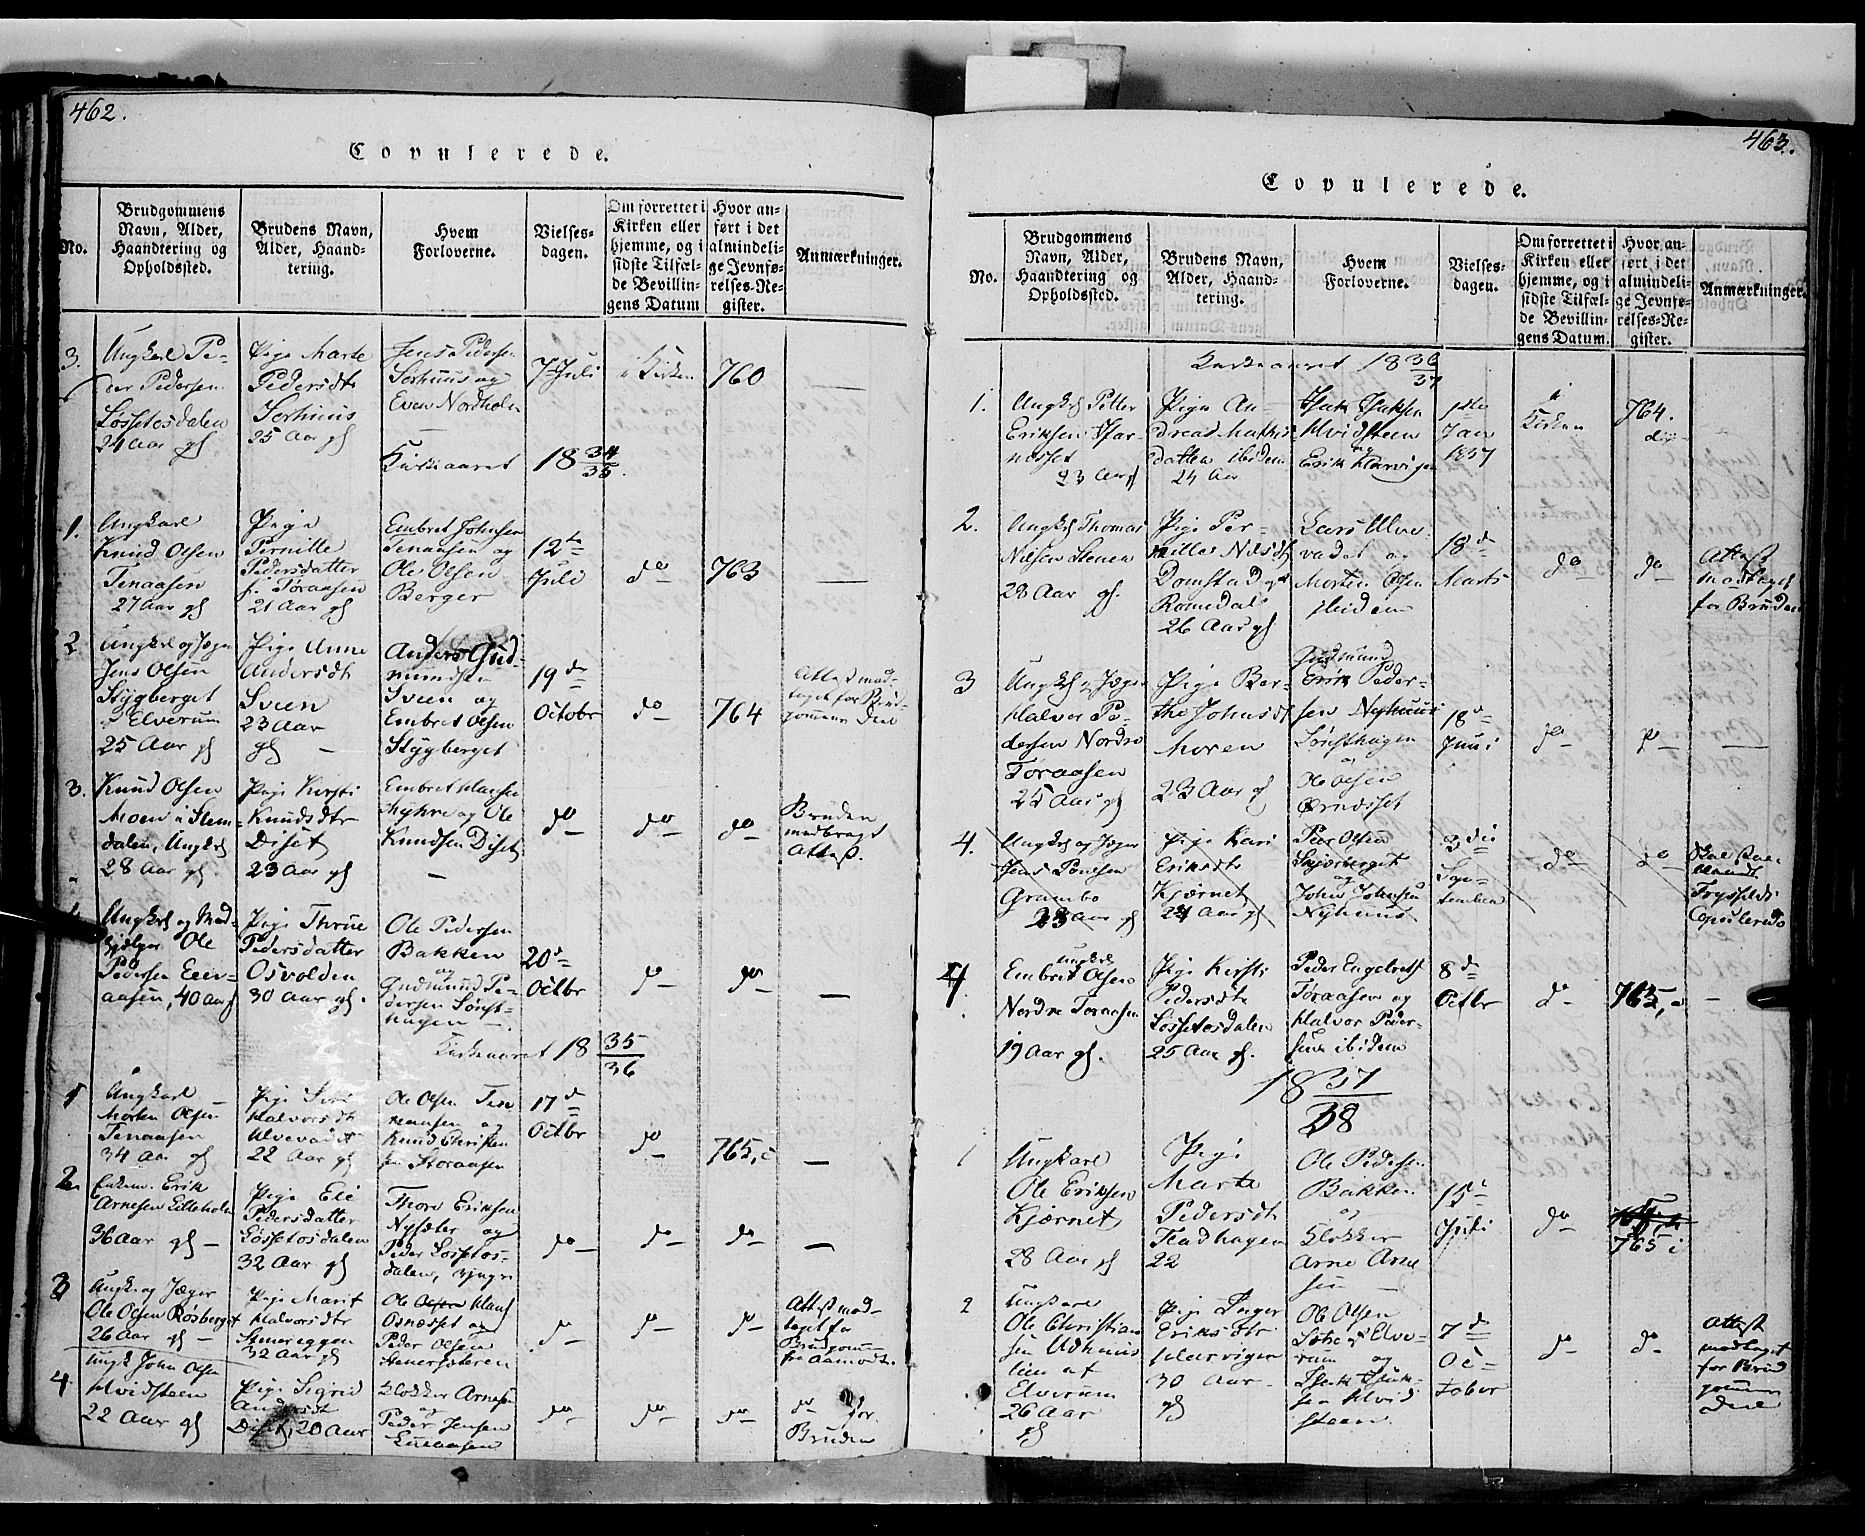 462.
Copulerede.
No.
Brudgommens
Navn, Alder,
Haandtering og
Opholdssted.
Brudens Navn,
Alder, Haand-
tering.
Hvem
Forloverne.
Vielses-
dagen.
Om forrettet i
Kirken eller
hjemme, og i
sidste Tilfæl-
de Bevillin-
gens Datum
Hvor an-
ført i det
almindeli-
ge Jevnfø-
relses-Re-
gister.
Anmærkninger.
3.
Ungkarl Pe-
der Pedersen
Løssetesdalen
24 Aar gl
Pige Marte
Pedersdtr
Sorhuus
25 Aar gl
Jens Pedersen
Sorhuus og
Even Nordholen
7 Juli
i Kirken
760
Kirkeaaret 18 34/35.
1.
Ungkarl
Knud Olsen
Tenaasen
27 Aar gl
Pige
Pernille
Pedersdatter
f. Toraasen
21 Aar gl
Embret Johnsen
Tenaasen og
Ole Olsen
Berger
12te
Juli
do
763
2
Ungkrl og Jæger
Jens Olsen
Stygberget
Elverum
25 Aar gl
Pige Anne
Andersdt
Sveen
23 Aar
gl
Anders Gud-
mundsen
Sveen og
Embret Olsen
Stygberget
19de
Octobr
do
764
Attest mod-
taget for Brud-
gommens Deel
3.
Knud Olsen
Moen i Slem-
dalen, Ungkrl
28 Aar gl.
Pige Kirsti
Knudsdtr
Diset
23 Aar gl
Embret Hansen
Myhre og Ole
Knudsen Diset
do
do
do
Bruden
medbragt
Attest.
Ungkrl og Med-
hjelper Ole
Pedersen Een-
aasen, 40 Aar gl
Pige Thrine
Pedersdatter
Osvolden
30 Aar gl.
Ole Pedersen
Bakken
og
Gudmund Pe-
dersen Sørst-
hagen
20de
Octbr
do
do
Kirkeaaret 18 35/36
1
Ungkarl
Morten Olsen
Tenaasen
34 Aar gl
Pige Siri
Halvorsdt
Ulvevadet
22 Aar gl
Ole Olsen Ten-
naasen og
Knud Christen
sen Storaasen
17de
Octbr
do
765, i
2.
Enkem. Erik
Arnesen Lilleholen
36 Aar gl
Pige Eli
Pedersdatter
Løssetosdalen
32 Aar gl
Thore Eriksen
Nysæter og
Peder Løssetos-
dalen,
do
do
do
3
Ungk. og Jæger
Ole Olsen Rosberget
26 Aar gl
Pige Marit
Halvorsdtr
Stenereggen
32 Aar gl
Ole Olsen Hans
Osnæsset og
Peder Olsen
do
do
do
Attest mod-
taget for
Brudgom
fra Aamodt.
4
Ungk John Olsen
Hvidsteen
22 Aar gl
Pige Sigrid
Andersdt
Diset, 20 Aar
Klokker Arnesen
og
Peder Jensen
do
do
do
do for
Bruden
463.
Copulerede.
No.
Brudgommens
Navn, Alder,
Haandtering og
Opholdssted.
Brudens Navn,
Alder, Haand-
tering.
Hvem
Forloverne.
Vielses-
dagen.
Om forrettet i
Kirken eller
hjemme, og i
sidste Tilfæl-
de Bevillin-
gens Datum.
Hvor an-
ført i det
almindeli-
ge Jevnfø-
relses-Re-
gister.
Anmærkninger.
Kirkeaaret 18 36/37
1.
Ungkrl Petter
Eriksen
23 Aar gl
Pige An-
dreas Mathis
datter ibidem
24 Aar
Isak Isaksen
Hvidsteen
og
Erik Harvigen
1ste
Jan
1837
i
Kirken
764.
2.
Ungkrl Thomas
Nilsen Stenen
28 Aar gl.
Pige Per-
nille Nilsdt
Domstad
Romedal
26 Aar gl
Lars Ulve-
vadet og
Morten Olsen
ibidem
18de
Marts
do
do
Attest
modtaget
for Bruden
3
Ungkrl og Jæger
Halvor Pe-
dersen Nordre
Toraasen
25 Aar gl
Pige Ber-
the Johnsdt
Moren
23 Aar gl
Gudmund
Erik Peder-
sen Nyhuus
Sørsthagen
og
Ole Olsen
Ørnæsset
18de
Juni
do
do
4.
Ungkrl og Jæger
Jens Poulsen
Grambo
23 Aar gl
Pige Kari
Eriksdtr
Kjærnet
24 Aar gl
Peer Olsen
Skjærberget
og
John Johnsen
Nyhuus
3die
Sep-
tember
do
do
Trysild
Copulerede
4
Ungkrl
Embret Olsen
Nordre Toraasen
19 Aar gl.
Pige Kirsti
Pedersdtr
Løssetosdalen
25 Aar gl.
Peder Engebrets
Toraasen og
Halvor Peder-
sen ibidem
8de
Octbr
do
765, i
18 37/38
1
Ungkarl
Ole Eriksen
Kjærnet
28 Aar gl
Pige
Marte
Pedersdt
Fladhagen
22
Ole Pedersen
Bakken
og
Klokker
Arne Arne
sen
15de
Juli
do
765 i
2
Ungkarl
Ole Christian
sen Udhuus
lien af
Elverum
26 Aar
gl
Pige Inger
Eriksdtr
Harvigen
30 Aar
gl
Ole Olsen
Elve-
rum og
Isak Isak-
sen Hvid
steen.
7de
Oc-
tober
do
do
Attest
modtaget
for Brud
gommens
Deel